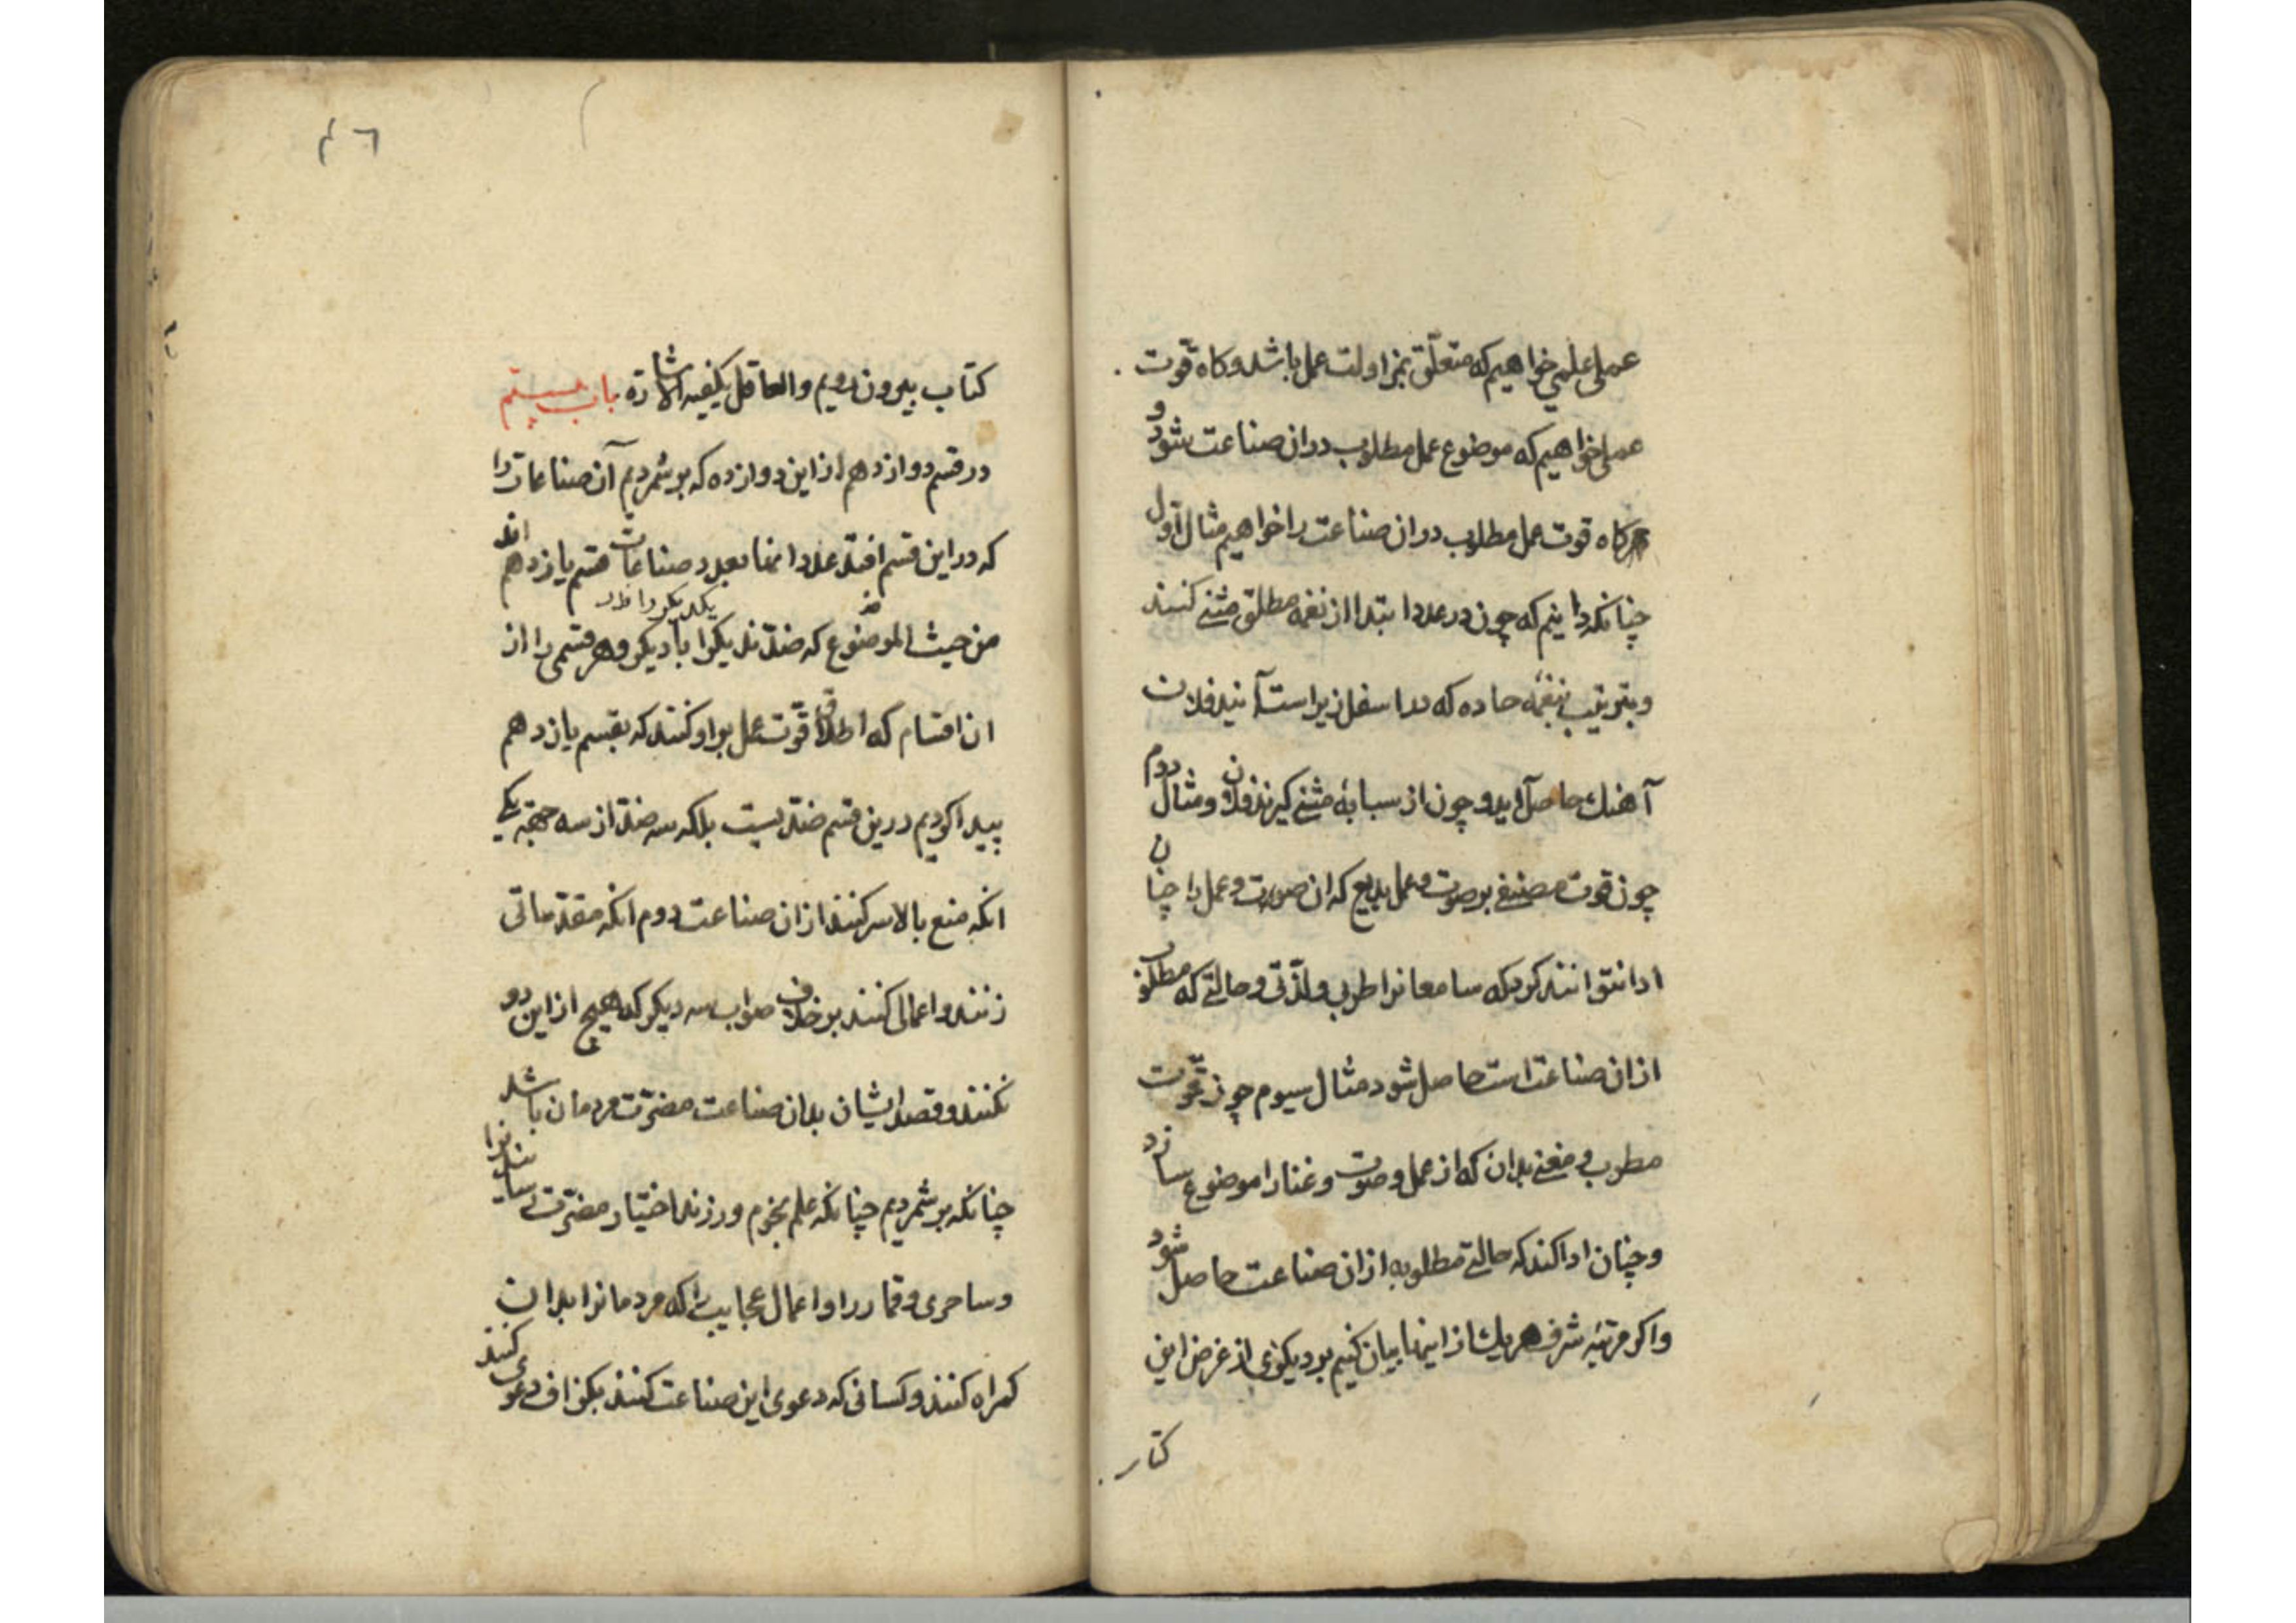 عملی علمی خواهیم که متعلّق بمزاولت عمل باشد و کاه قوّت
عملی خواهیم که موضوع عمل مطلوب دران صناعت شود و
هرکاه قوت عمل مطلوب دران صناعت را خواهیم مثال اول
چنانکه دانیم که چون در عدد ابتدا از نغمه مطلق مثنی کنند
و بترتیب بنغمهٔ حاده که مدا سفل زیراست آنید فلان
آهنك حاصل آید و چون از سبابهٔ مثنی کیرند فلان و مثال دوم
چون قوت مصنفی بر صوت و عمل بدیع که ان صوت و عمل را چنان
ادا نتوانند کرد که سامعانرا طربی و لذّتی و حالتی که مطلوب
ازان صناعت است حاصل شود مثال سیوم چون قوّت
مطرب و مغنی بدان که از عمل و صوت و غنا را موضوع سازد
و چنان ادا کند که حالتی مطلوبه ازان صناعت حاصل شود
و اکر مرتبه شرف هریك از اینها بیان کنیم بر دیکری از غرض این
کتاب
٤٦
کتاب بیرون رویم والعاقل یکفیه الاشارة باب بیستم
در قسم دوازدهم از این دوازده که برشمردیم آن صناعات را
که در این قسم افتد عدد انها بعدد صناعات قسم یازدهم اند
من حیث الموضوع که ضدّند یکرا با دیکر و هر قسمی را از
ان اقسام که اطلاق قوّت عمل براو کنند که بقسم یازدهم
پیدا کردیم درین قسم ضدیست بلکه سه ضدّ از سه جهته یکی
انکه منع بالاسر کنند ازان صناعت دوم انکه مقدّماتی
زنند و اعمالی کنند بر خلاف صواب سه دیکر که هیچ از این دو
نکنند و قصد ایشان بدان صناعت مضرّت مردمان باشد
چنانکه برشمردیم چنانکه علم نجوم ورزند اختیار مضرّت رسانیدنرا
و ساحری و قمار را و اعمال عجایب را که مردمانرا بدان
کمراه کنند و کسانی که دعوی این صناعت کنند بکزاف دعوی کنند